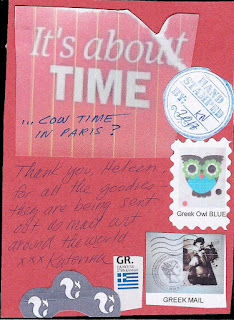 It's about
TIME
... COW TIME
IN PARIS?
HAND
STAMPED
BY: KN
Thank you, Heleen,
for all the goodies -
they are being sent
out as mail art
around the world
xxx Katerina
Greek Owl BLUE
GR.
GREEK MAIL